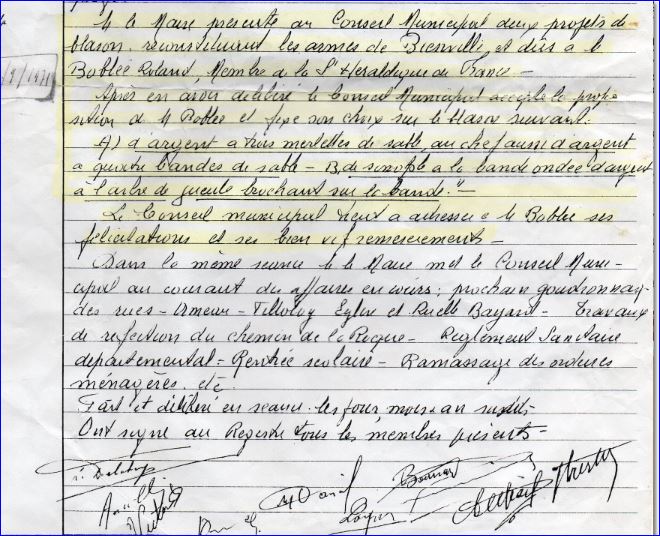 M. le Maire présente au Conseil Municipal deux projets de
blason, reconstituant les armes de Bienville et dûs à M.
Bobléé Roland, Membre de la Sté Héraldique de France —
Après en avoir délibéré le Conseil Municipal accepte la propo
sition de M. Bobléé et fixe son choix sur le blason suivant.
A) d'argent à trois merlettes de sable, au chef aussi d'argent
à quatre bandes de sable — B, de sinople à la bande ondée d'argent
à l'arbre de gueule brochant sur la bande." —
Le Conseil municipal tient à adresser à M. Bobléé ses
félicitations et ses bien vifs remerciements —
Dans la même séance M. le Maire met le Conseil Muni-
cipal au courant des affaires en cours; prochain goudronnage
des rues — Ormeau — Tilloloy Eglise et Ruelle Bayard — Travaux
de réfection du chemin de la Roque — Règlement Sanitaire
départemental — Rentrée scolaire — Ramassage des ordures
ménagères. etc
Fait et délibéré en séance les jour, mois et an susdits
Ont signé au Registre tous les membres présents —